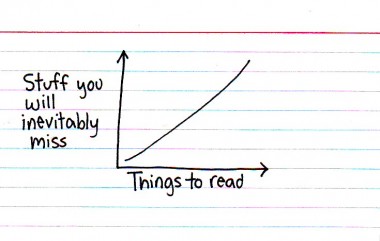 Stuff you
will
inevitably
miss
Things to read